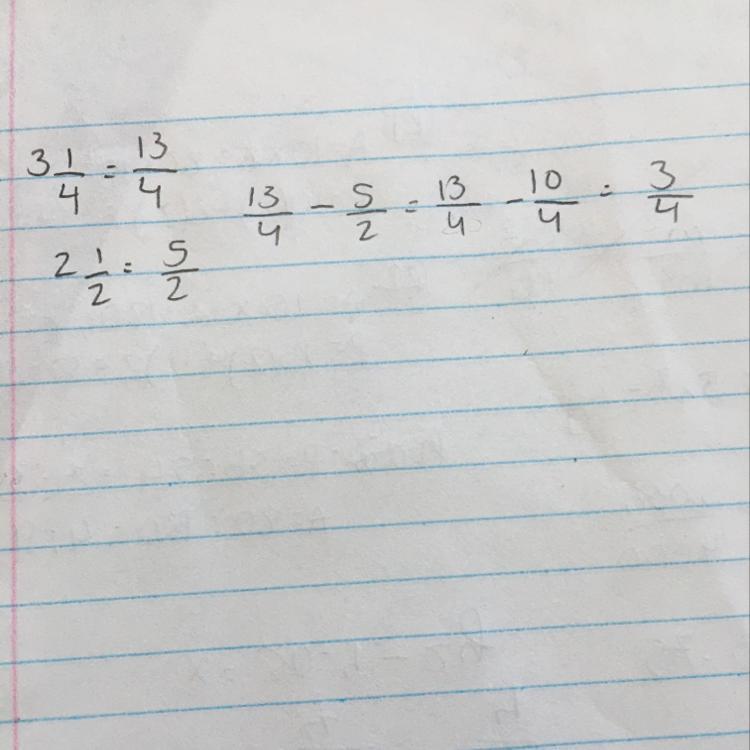 3 1/4 = 13/4
13/4 - 5/2 = 13/4 - 10/4 = 3/4
2 1/2 = 5/2